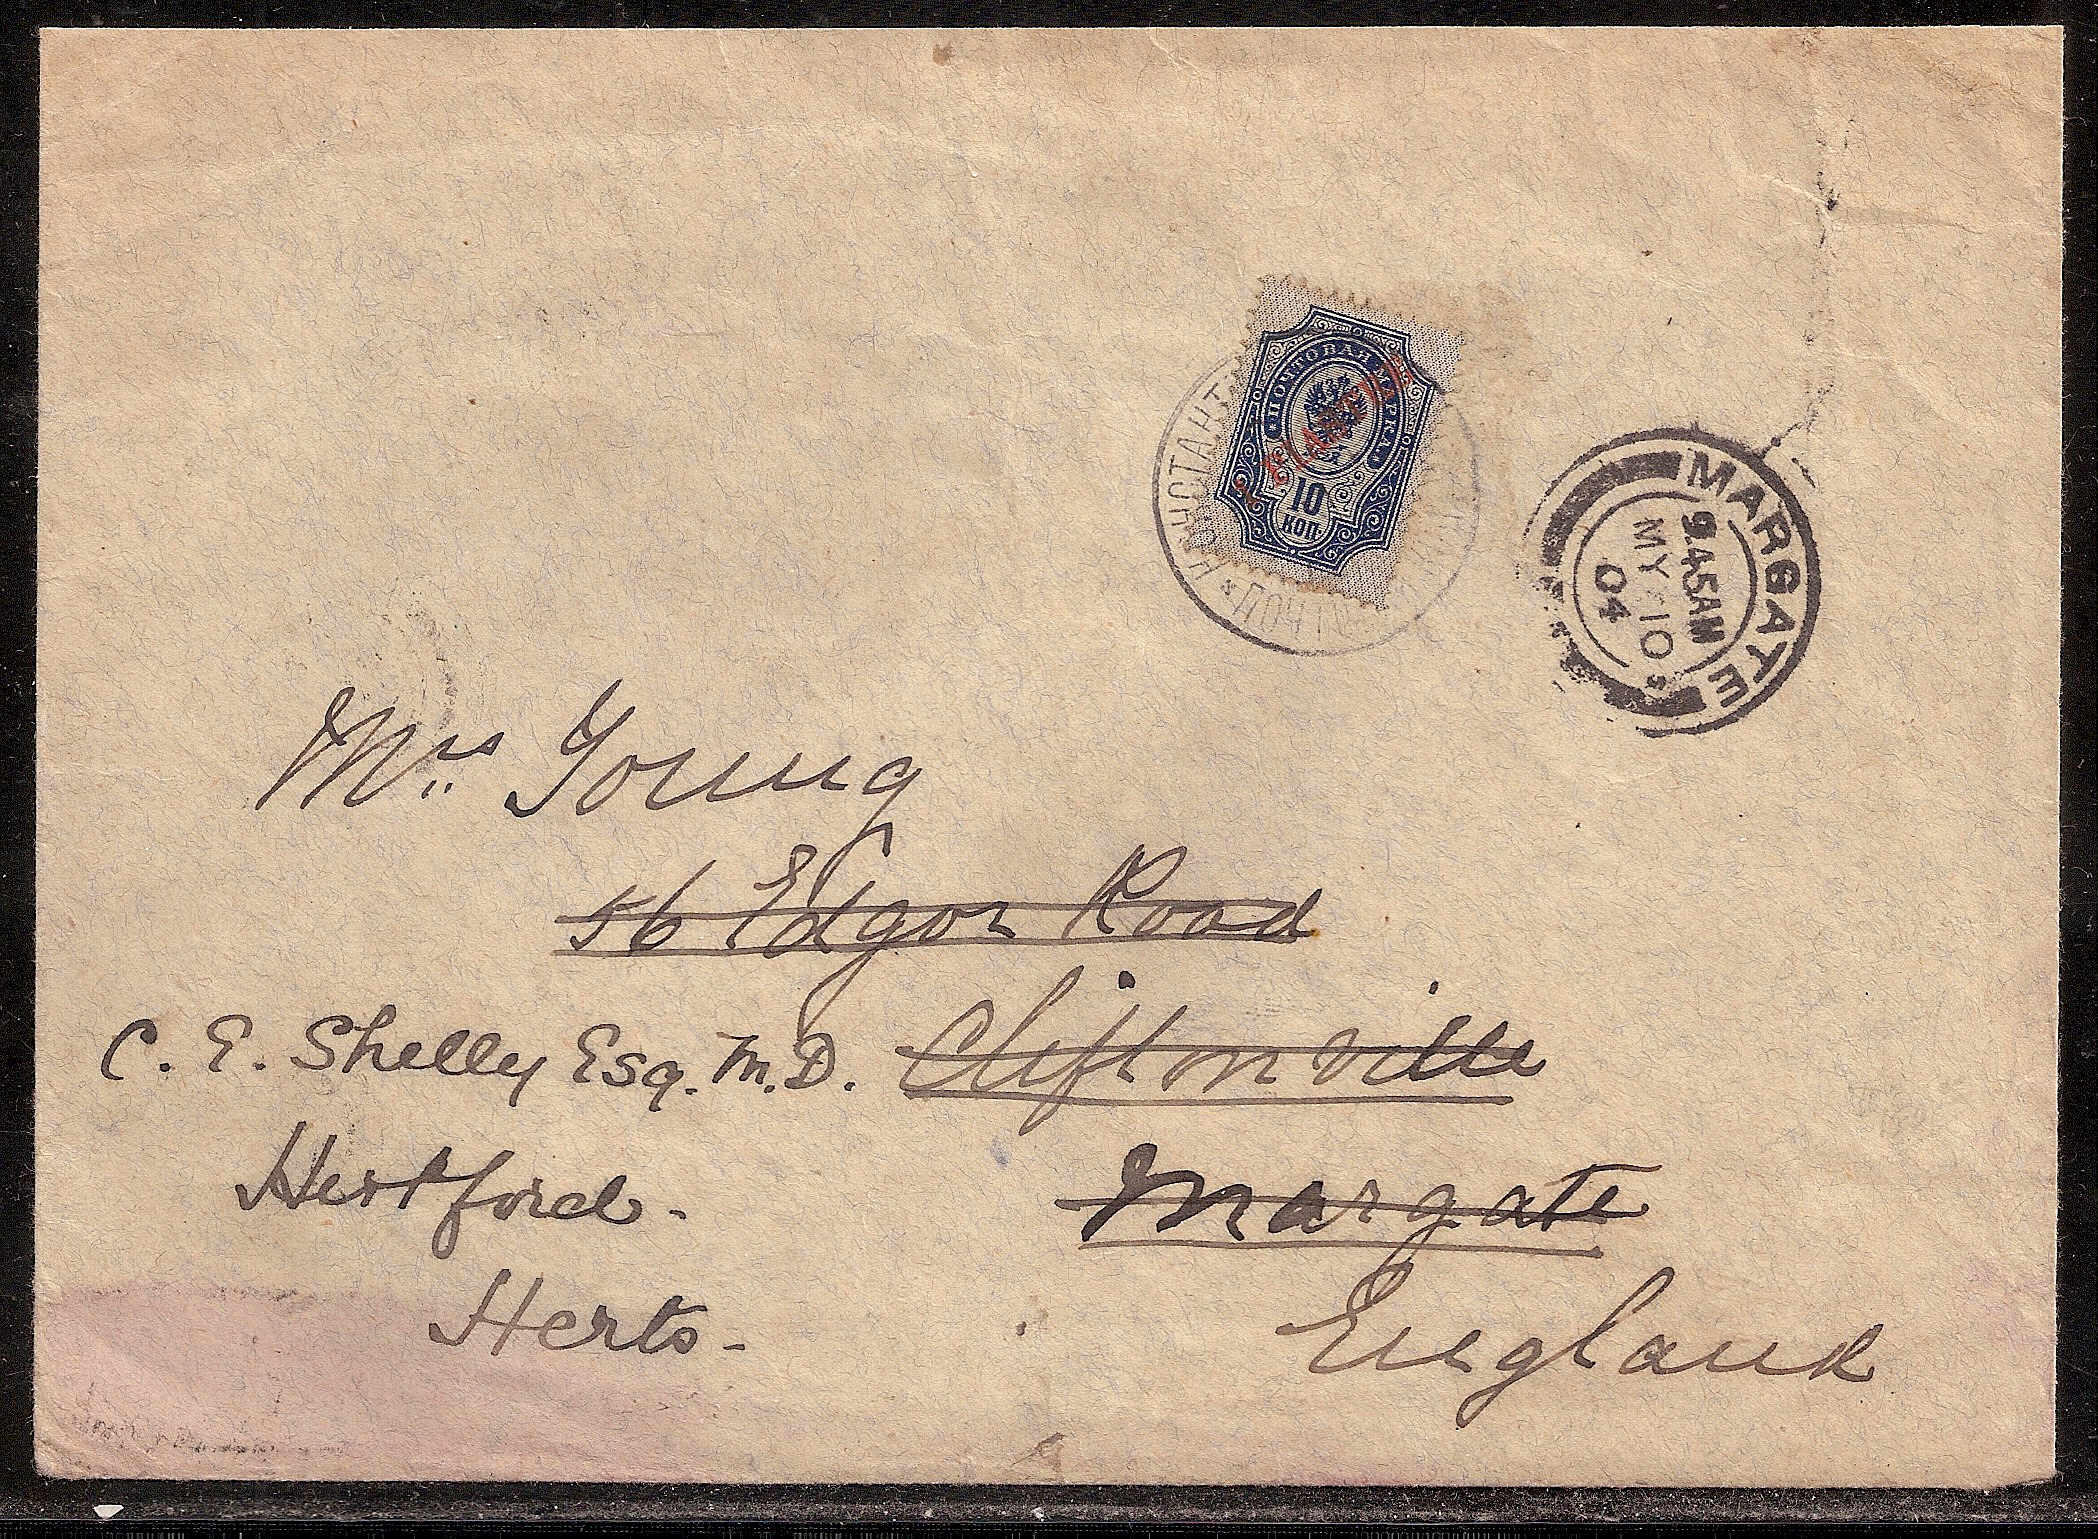 ПОЧТОВАЯ МАРКА
1 ПІАСТРЪ
10
КОП
КОНСТАНТ
ПОЧТ
MARGATE
9.45AM
MY 10
04
Mrs Young
56 Edgar Road
C. E. Shelly Esq. M.D. Cliftonville
Hertford. Margate
Herts. England